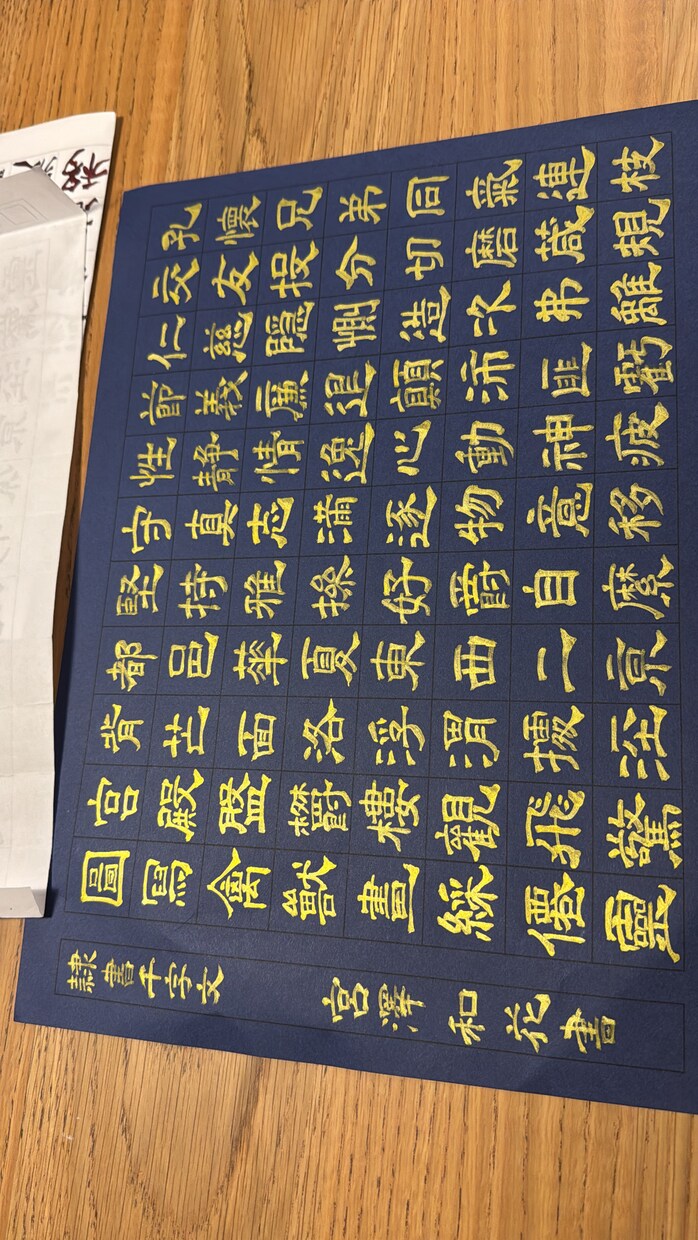 孔懷兄弟同氣連枝
交友投分切磨箴規
仁慈隱惻造次弗離
節義廉退顛沛匪虧
性靜情逸心動神疲
守真志滿逐物意移
堅持雅操好爵自縻
都邑華夏東西二京
背芒面洛浮渭據涇
宮殿盤鬱樓觀飛驚
圖寫禽獸畫綵僊靈
隷書千字文
宮澤和花書